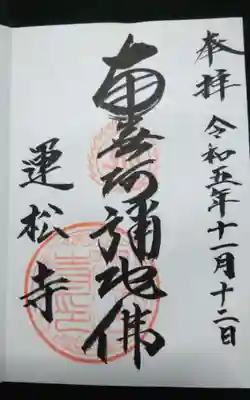 奉拝 令和五年十一月十二日
南無阿弥陀佛
運松寺